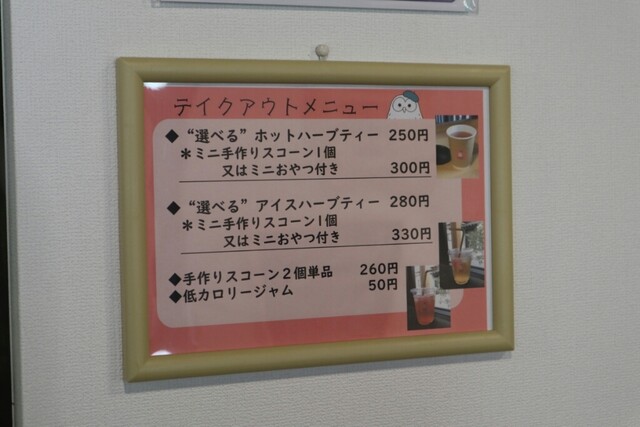 テイクアウトメニュー
◆“選べる”ホットハーブティー 250円
＊ミニ手作りスコーン1個
又はミニおやつ付き 300円
◆“選べる”アイスハーブティー 280円
＊ミニ手作りスコーン1個
又はミニおやつ付き 330円
◆手作りスコーン２個単品 260円
◆低カロリージャム 50円